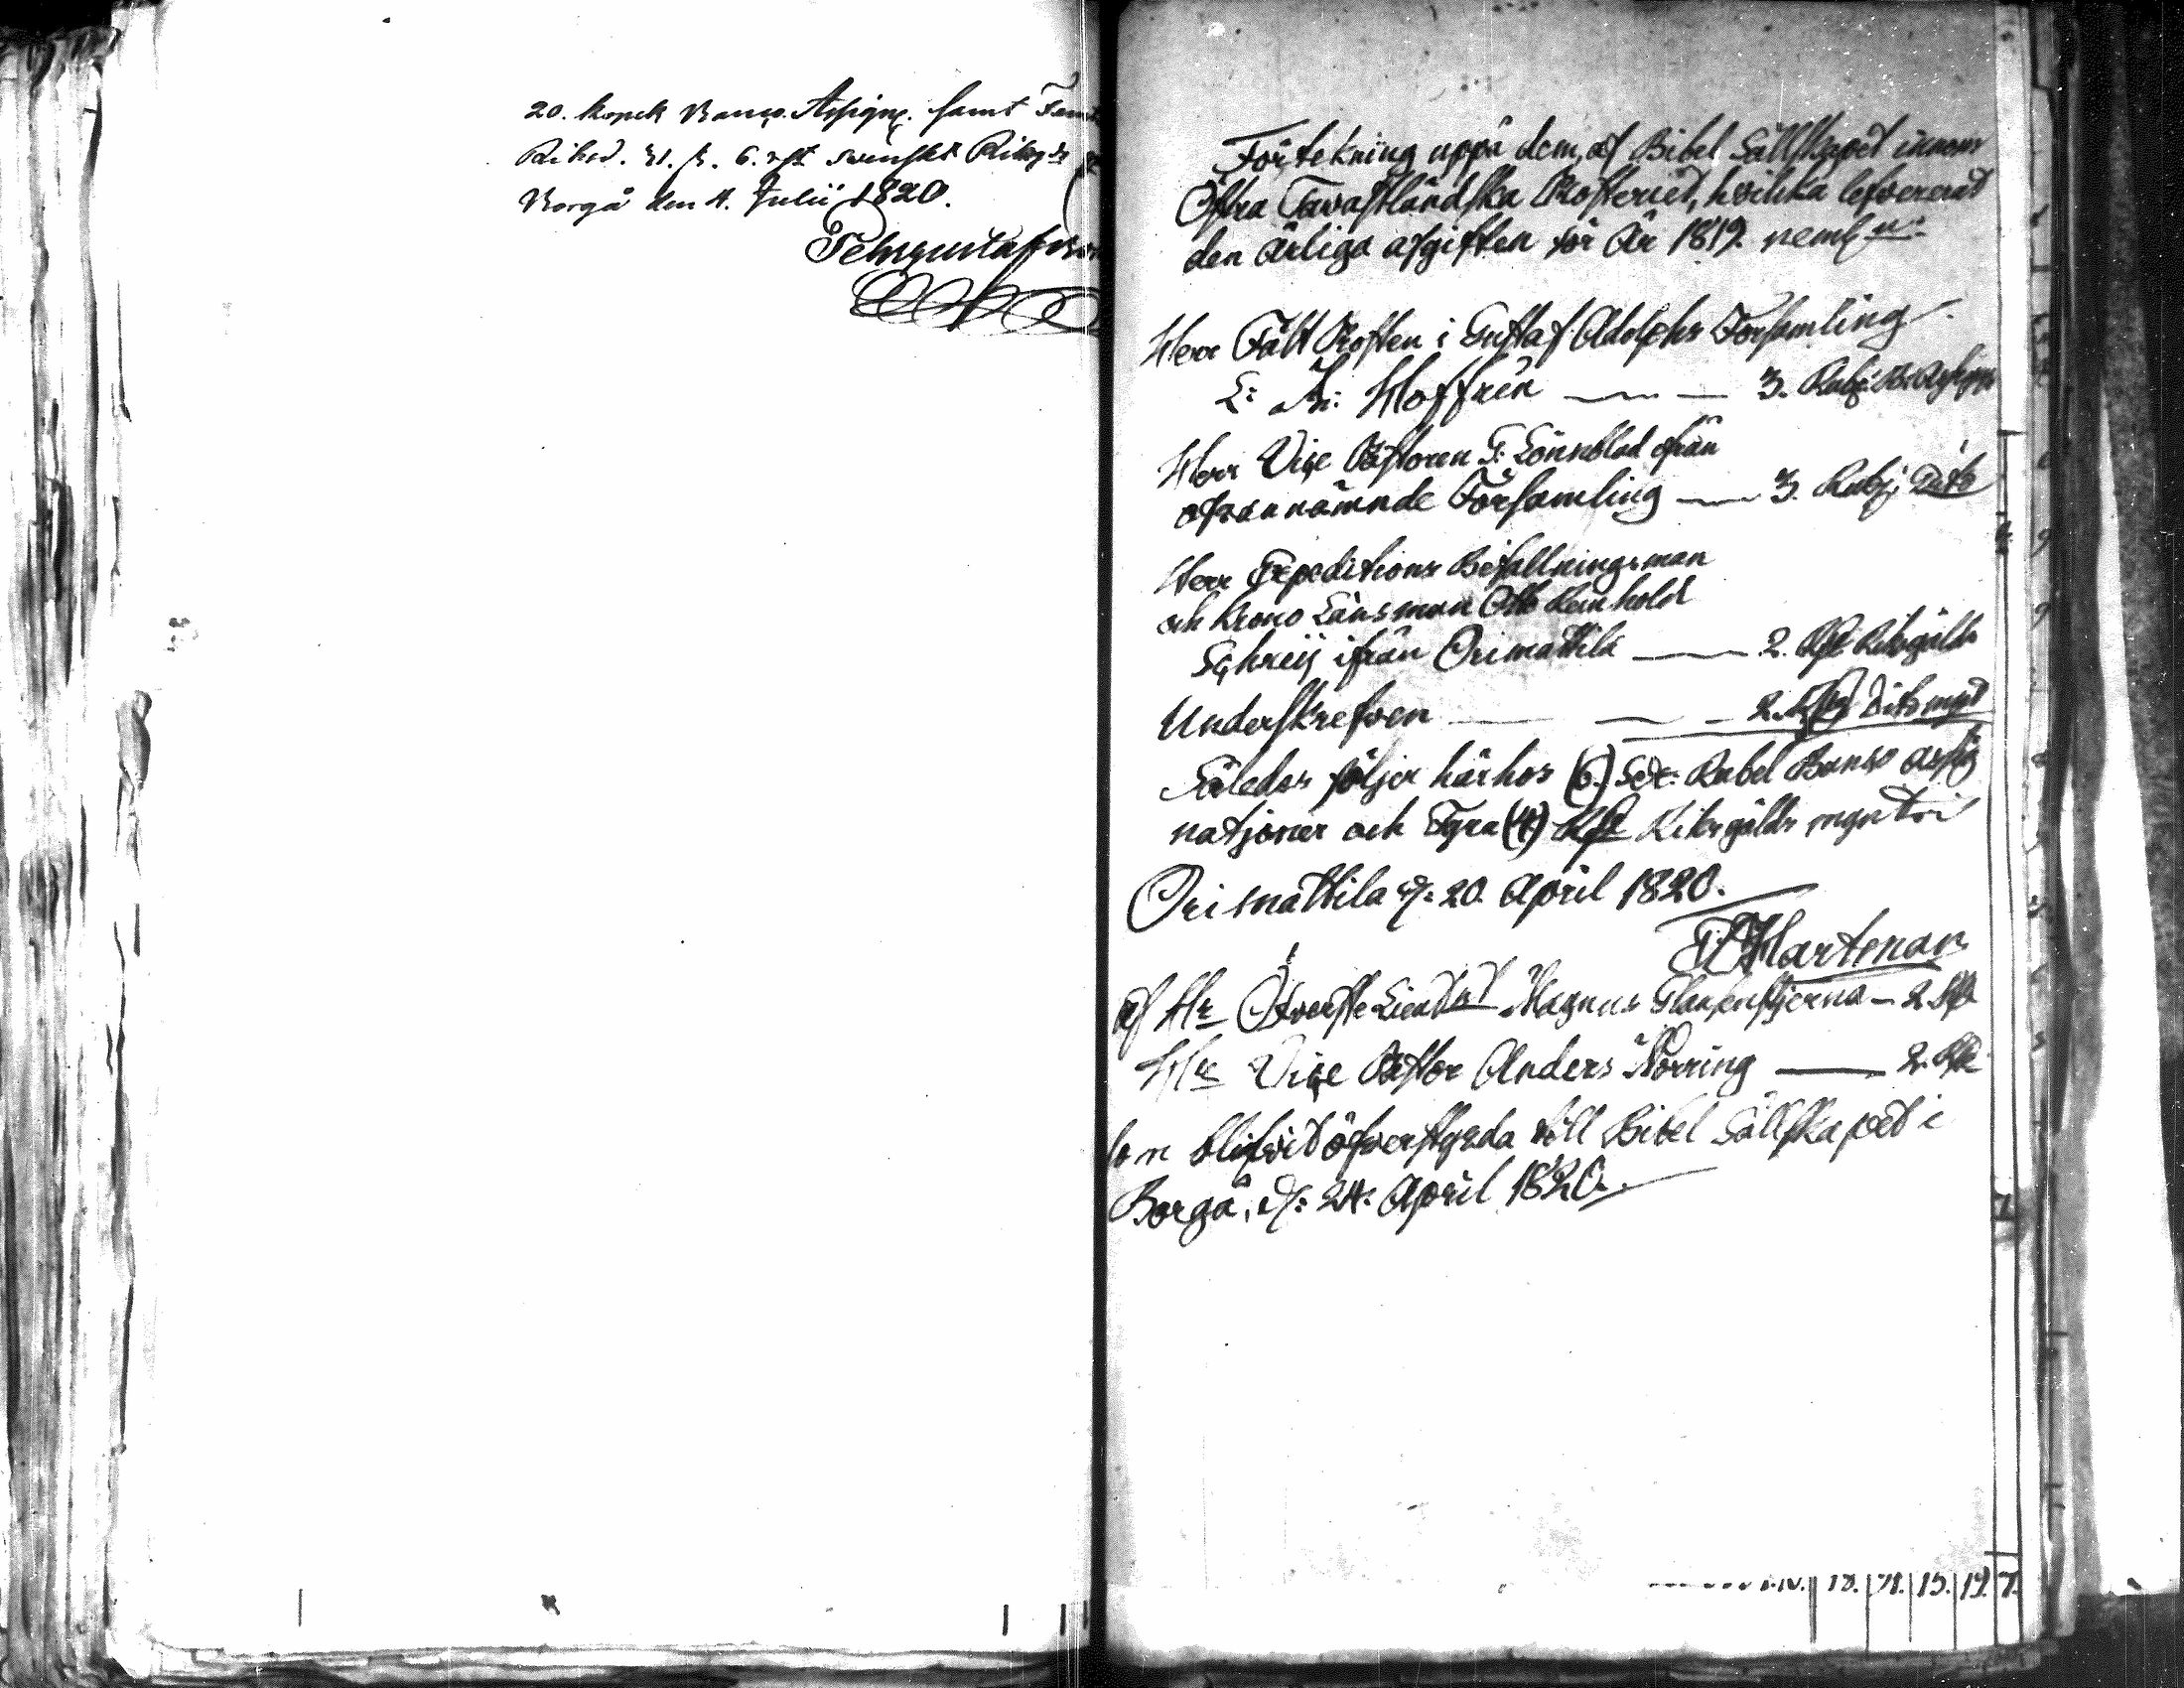 20. Kopek Banco Assign. samt Fem
Riksd. 31. s. 6. rst svenskt Riksg:s
Borgå den 4. Julii 1820.
Pehr Gustafsson
Förtekning uppå dem, af Bibel Sällskapet innom
Öfra Tavastländska Prosteriet, hvilka lefvererat
den årliga afgiften för År 1819. neml:n
Herr Fält Prosten i Gustaf Adolphs Församling
3. Rub:
Herr Vice Pastoren G: Lönnblad ifrån
ofvannämnde Församling 3. Rub: Dito
Herr Expeditions Befallningsman
och Krono Länsman Otto Reinhold
Schreij ifrån Orimattila 2. Rd Riksgälds
Underskrefven 2. Rd Dito mynt
Således följer härhos (6.) Sex Rubel Banco assig
nationer och Fyra (4) Rd Riksgälds mynt
Orimattila d. 20. April 1820.
Hartman
af Hr Öfverste Lieutnt Magnus Glansenstjerna – 2. Rd
Hr Vice Pastor Anders Norring 2. Rd
som blifvit öfverstyrda till Bibel Sällskapet i
Borgå, d: 24. April 1820.